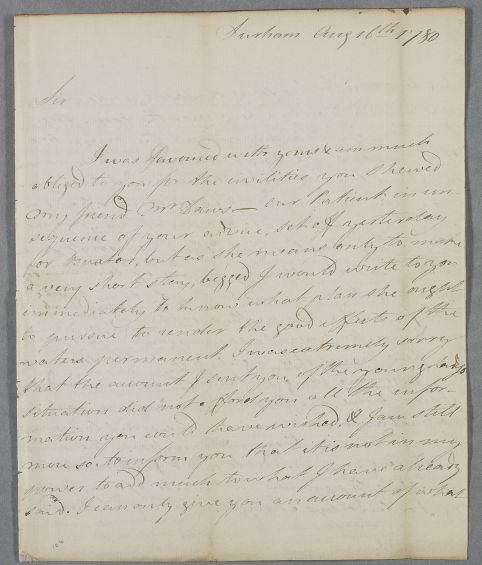 Durham Aug 16th 1780
Sir
I was favoured with yours & am much
obliged to you for the civilities you shewed
my friend Mr Daws - our Patient in con-
sequence of your advice, set off yesterday
for Buxton, but as she means only to make
a very short stay, begged I would write to you
immediately to know what plan she ought
to pursue to render the good effects of the
waters permanent. I was extremely sorry
that the account I sent you of the young lady's
situation did not afford you all the infor-
mation you could have wished, & I am still
more so, to inform you that it is not in my
power to add much to what I have already
said. I can only give you an account of what